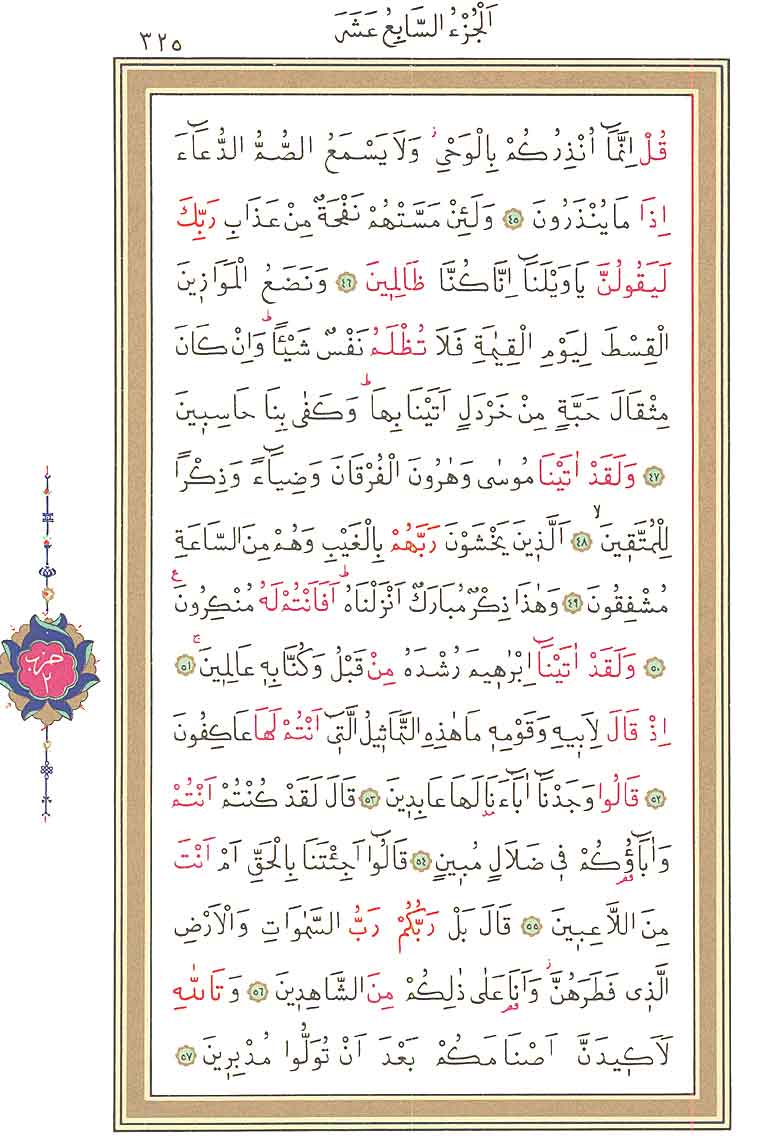 اَلْجُزْءُ السَّابِعُ عَشَرَ
٣٢٥
قُلْ اِنَّمَٓا اُنْذِرُكُمْ بِالْوَحْيِۘ وَلَا يَسْمَعُ الصُّمُّ الدُّعَٓاءَ
اِذَا مَا يُنْذَرُونَ ٤٥ وَلَئِنْ مَسَّتْهُمْ نَفْحَةٌ مِنْ عَذَابِ رَبِّكَ
لَيَقُولُنَّ يَا وَيْلَنَٓا اِنَّا كُنَّا ظَالِم۪ينَ ٤٦ وَنَضَعُ الْمَوَاز۪ينَ
الْقِسْطَ لِيَوْمِ الْقِيٰمَةِ فَلَا تُظْلَمُ نَفْسٌ شَيْـًٔاۜ وَاِنْ كَانَ
مِثْقَالَ حَبَّةٍ مِنْ خَرْدَلٍ اَتَيْنَا بِهَاۜ وَكَفٰى بِنَا حَاسِب۪ينَ
٤٧ وَلَقَدْ اٰتَيْنَا مُوسٰى وَهٰرُونَ الْفُرْقَانَ وَضِيَٓاءً وَذِكْرًا
لِلْمُتَّق۪ينَۙ ٤٨ اَلَّذ۪ينَ يَخْشَوْنَ رَبَّهُمْ بِالْغَيْبِ وَهُمْ مِنَ السَّاعَةِ
مُشْفِقُونَ ٤٩ وَهٰذَا ذِكْرٌ مُبَارَكٌ اَنْزَلْنَاهُۜ اَفَاَنْتُمْ لَهُ مُنْكِرُونَ۟
٥٠ وَلَقَدْ اٰتَيْنَٓا اِبْرٰه۪يمَ رُشْدَهُ مِنْ قَبْلُ وَكُنَّا بِه۪ عَالِم۪ينَۚ ٥١
اِذْ قَالَ لِاَب۪يهِ وَقَوْمِه۪ مَا هٰذِهِ التَّمَاث۪يلُ الَّت۪ٓي اَنْتُمْ لَهَا عَاكِفُونَ
٥٢ قَالُوا وَجَدْنَٓا اٰبَٓاءَنَا لَهَا عَابِد۪ينَ ٥٣ قَالَ لَقَدْ كُنْتُمْ اَنْتُمْ
وَاٰبَٓاؤُ۬كُمْ ف۪ي ضَلَالٍ مُب۪ينٍ ٥٤ قَالُٓوا اَجِئْتَنَا بِالْحَقِّ اَمْ اَنْتَ
مِنَ اللَّاعِب۪ينَ ٥٥ قَالَ بَلْ رَبُّكُمْ رَبُّ السَّمٰوَاتِ وَالْاَرْضِ
الَّذ۪ي فَطَرَهُنَّۘ وَاَنَا۬ عَلٰى ذٰلِكُمْ مِنَ الشَّاهِد۪ينَ ٥٦ وَتَاللّٰهِ
لَاَك۪يدَنَّ اَصْنَامَكُمْ بَعْدَ اَنْ تُوَلُّوا مُدْبِر۪ينَ ٥٧
حزب
٢